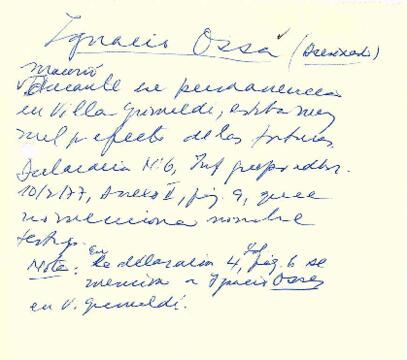 Ignacio Ossa (Asesinado)
murió
durante su permanencia
en Villa Grimaldi, estaba muy
mal efecto de las torturas
Declaración Nº6, Inf preparador.
10/2/77, Anexo II, pág. 9, que
no menciona nombre
testigo.
Nota: En la declaración 4, pág. 6 se
menciona a Ignacio Ossa
en V. Grimaldi.